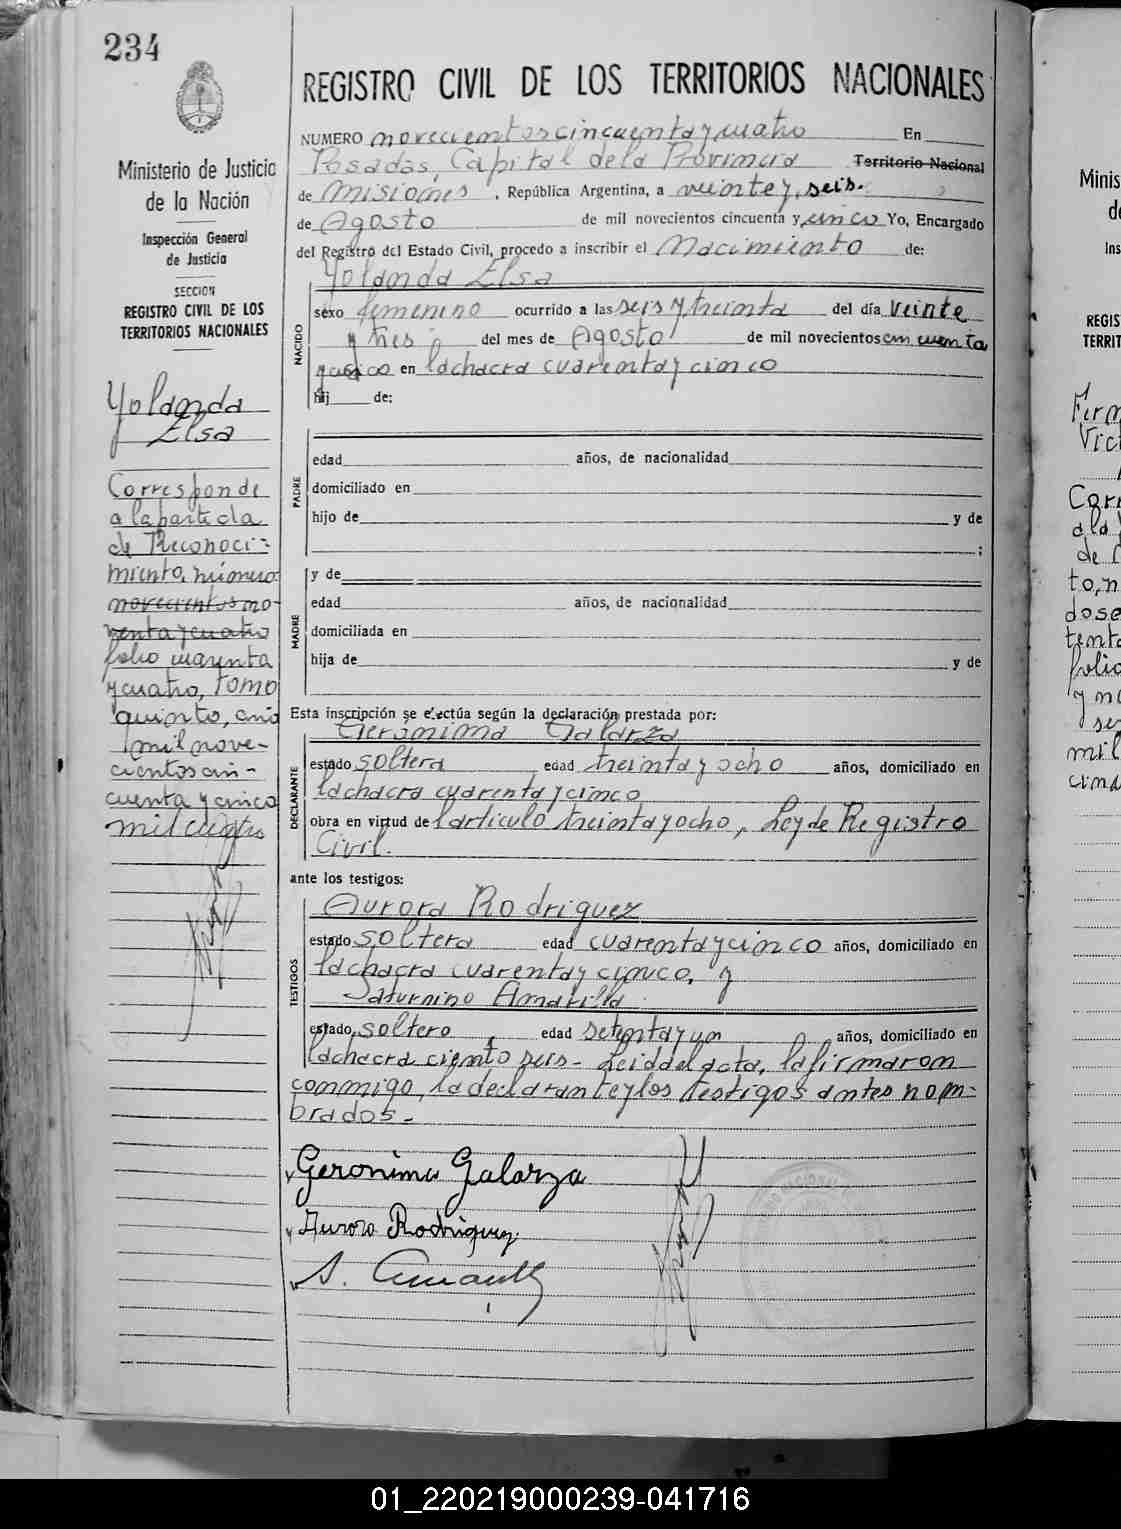 234
Ministerio de Justicia
de la Nación
Inspección General
de Justicia
SECCION
REGISTRO CIVIL DE LOS
TERRITORIOS NACIONALES
Yolanda
Elsa
Corresponde
a la partida
de Reconoci-
miento, número
novecientos no-
venta y cuatro
folio cuarenta
y cuatro, Tomo
quinto, año
mil nove-
cientos cin-
cuenta y cinco
mil cuatro
REGISTRO CIVIL DE LOS TERRITORIOS NACIONALES
NUMERO novecientos cincuenta y cuatro En
Posadas, Capital de la Provincia Territorio Nacional
de Misiones, República Argentina, a veinte y seis.
de Agosto de mil novecientos cincuenta y cinco Yo, Encargado
del Registro del Estado Civil, procedo a inscribir el Nacimiento de:
Yolanda Elsa
NACIDO
sexo femenino ocurrido a las seis y treinta del día veinte
y tres del mes de Agosto de mil novecientos cincuenta
y cinco en la chacra cuarenta y cinco
hij de:
PADRE
edad años, de nacionalidad
domiciliado en
hijo de y de
;
MADRE
y de
edad años, de nacionalidad
domiciliada en
hija de y de
Esta inscripción se efectúa según la declaración prestada por:
Geronima Galarza
DECLARANTE
estado soltera edad treinta y ocho años, domiciliado en
la chacra cuarenta y cinco
obra en virtud de l artículo treinta y ocho, Ley de Registro
Civil.
ante los testigos:
TESTIGOS
Aurora Rodriguez
estado soltera edad cuarenta y cinco años, domiciliado en
la chacra cuarenta y cinco, y
Saturnino Amarilla
estado soltero, edad setenta y un años, domiciliado en
la chacra ciento seis - Leida el acta, la firmaron
conmigo, la declarante y los testigos antes nom-
brados.-
Geronima Galarza
Aurora Rodriguez
S. Amarilla
Minis
de
Ins
REGIS
TERRIT
Ferm
Vict
Corr
a la
de
to, n
dose
tent
folio
y no
mil
cinc
01_220219000239-041716